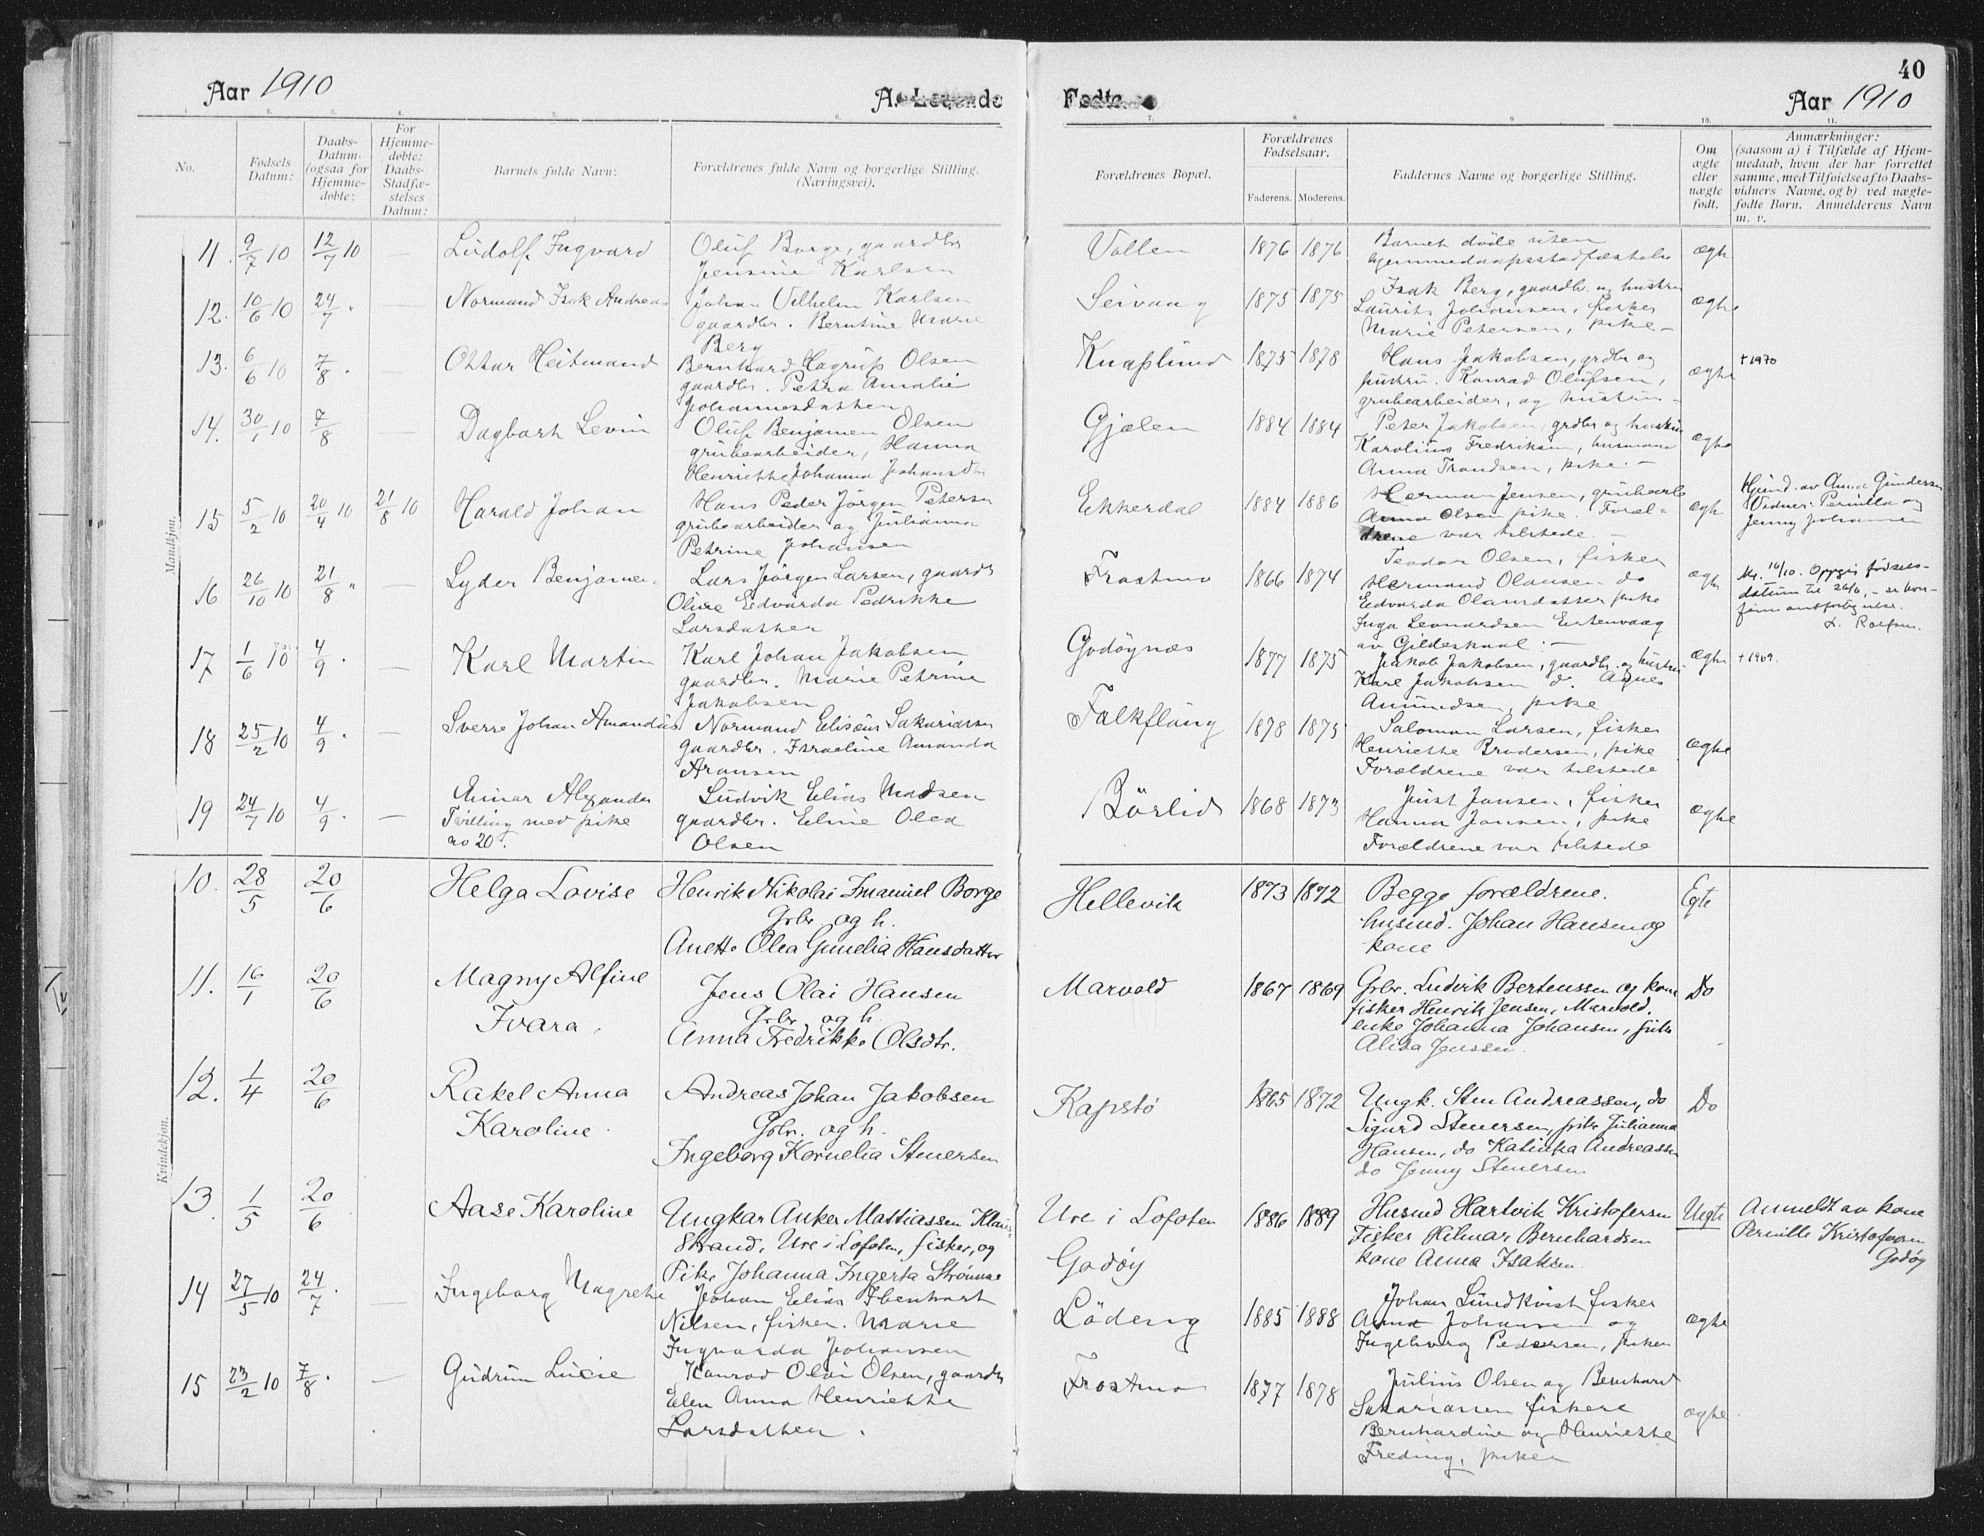 Aar 1910
A. Levende Fødte.
Aar 1910
40
No.
Fødsels Datum:
Daabs-Datum (ogsaa for Hjemme-døbte:
For Hjemme-døbte: Daabs-Stadfæ-stelses Datum:
Barnets fulde Navn:
Forældrenes fulde Navn og borgerlige Stilling.
(Næringsvei).
Forældrenes Bopæl.
Forældrenes Fødselsaar.
Faderens. Moderens.
Faddernes Navne og borgerlige Stilling.
Om ægte eller uægte født.
Anmærkninger:
(saasom a) i Tilfælde af Hjem-
medaab, hvem der har forrettet
samme, med Tilføielse af to Daabs-
vidners Navne, og b) ved uægte-
fødte Børn. Anmelderens Navn
m. v.
Mandkjøn.
11. 9/7 10 12/7 10 — Ludolf Ingvard Oluf Borge, gaardbr Vollen 1876 1876 Barnet døde uten ægte
Jensine Karlsen hjemmedaapsstadfæstelse
12. 10/6 10 24/7 — Normand Isak Andreas Johan Vilhelm Karlsen Seivaag 1875 1875 Isak Berg, gaardbr. og hustru ægte
gaardbr. Berntine Marie Laurits Johansen, fisker
Berg Marie Petersen, pike —
13. 6/6 10 7/8 — Ottar Heitmand Bernhard Hagrup Olsen Knaplund 1875 1878 Hans Jakobsen, grdbr og ægte † 1970
gaardbr. Petra Amalie hustru. Konrad Olufsen,
Johannesdatter grubearbeider, og hustru —
14. 30/1 10 7/8 — Dagbart Levin Oluf Benjamen Olsen Gjælen 1884 1884 Peter Jakobsen, grdbr og hustru ægte
grubearbeider, Hanna Karolius Fredriksen, husmand
Henriette Johanna Johansdtr Anna Trondsen, pike. —
15 5/2 10 20/4 10 21/8 10 Harald Johan Hans Peder Jørgen Petersen Ekkerdal 1884 1886 Herman Jensen, grubearb ægte Hjemd. av Anna Gundersen
grubearbeider og Julianna Anna Olsen pike. Foræl- Vidner: Pernilla og
Petrine Johansen drene var tilstede. — Jenny Johansen
16 26/10 10 21/8 — Lyder Benjamen Lars Jørgen Larsen, gaardb Frostmo 1866 1874 Teodor Olsen, fisker ægte Nr. 16/10. Oppgis fødsels-
Oline Edvarda Fedrikke Hermand Olausen do datum til 26/6, – se kon-
Larsdatter Edvarda Olausdatter pike
Inga Leonardsen Entenvaag L. Rolfsen.
av Gildeskaal. —
17 1/6 10 4/9 — Karl Martin Karl Johan Jakobsen Godøynes 1877 1875 Jakob Jakobsen, gaardbr. og hustru ægte † 1969.
gaardbr. Marie Petrine Karl Jakobsen d. Agnes
Jakobsen Amundsen, pike
18 25/2 10 4/9 — Sverre Johan Amandus Normand Elisæus Sakariassen Falkflaug 1878 1875 Salomon Larsen, fisker ægte
gaardbr. Israeline Amanda Henriette Brodersen, pike
Aronsen Forældrene var tilstede
19 24/7 10 4/9 — Einar Alexander Ludvik Elias Madsen Børlid 1868 1873 Just Jansen, fisker ægte
Tvilling med pike gaardbr. Eline Olea Hanna Jansen, pike
no 20. Olsen Forældrene var tilstede
Kvindekjøn.
10. 28/5 20/6 Helga Lovise Henrik Nikolai Imanuel Borge Hellevik 1873 1872 Begge forældrene. Egte
Grbr og h. husmd. Johan Hansen og
Anette Olea Gunelia Hansdatter kone
11. 16/1 20/6 Magny Alfine Jens Olai Hansen Marvold 1867 1869 Grbr. Ludvik Bertenssen og kone Do
Ivara. Grbr og h. fisker Henrik Jensen, Marvold,
Anna Fredrikke Olsdtr. enke Johanna Johansen, frk
Alida Jenssen.
12. 1/4 20/6 Rakel Anna Andreas Johan Jakobsen Kapstø 1865 1872 Ungk. Sten Andreassen, do Do
Karoline. Grbr. og h. Sigurd Stenersen, frk Julianna
Ingeborg Kornelia Stenersen Hansen, do Katinka Andreassen
do Jenny Stenersen
13 1/5 20/6 Aase Karoline Ungkar Anker Mattiassen Klaus- Ure i Lofoten 1886 1889 Husmd Hartvik Kristofersen Uegte Anmeldt av kone
strand, Ure i Lofoten, fisker, og Godøy Fisker Hilmar Bernhardsen Pernille Kristofersen
Pike Johanna Ingerta Strømsæ kone Anna Isaksen. Godøy
14 27/5 10 24/7 — Ingeborg Margrete Johan Elias Ebenhart Löding 1885 1888 Johan Lundkvist fisker ægte
Nilsen, fisker. Marie Anna Johansen og
Ingvarda Johansen Ingeborg Pedersen, piker
15 23/2 10 7/8 — Gudrun Lucie Konrad Olai Olsen, gaardbr Frostmo 1877 1878 Julius Olsen og Bernhard ægte
Elen Anna Henriette Sakariassen fiskere
Larsdatter. Bernhardine og Henriette
Freding, piker